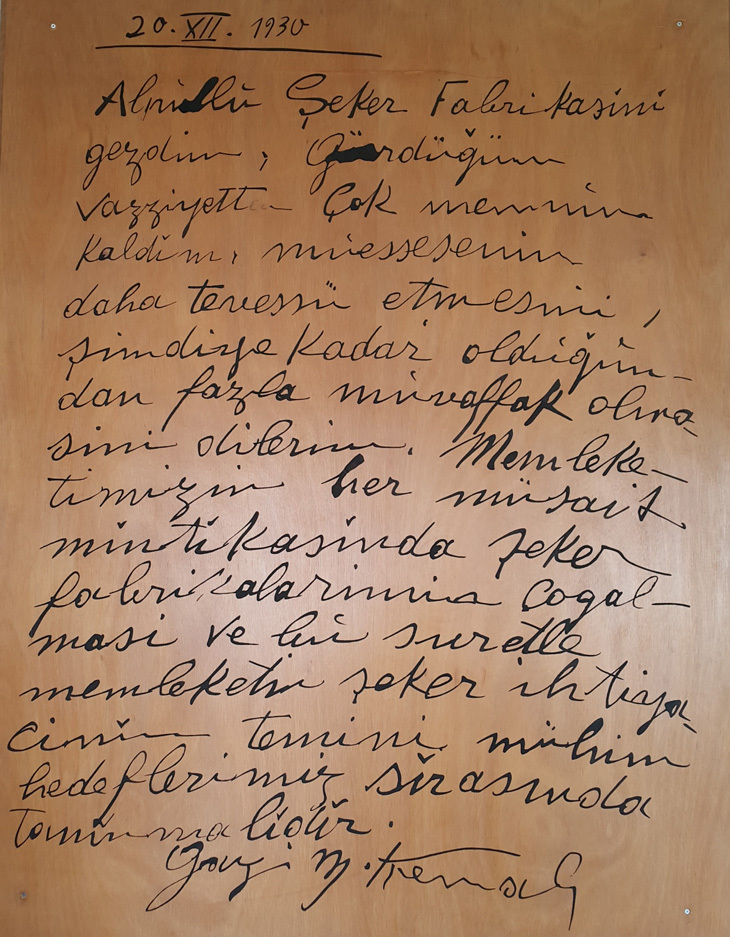 20. XII. 1930
Alpullu Şeker Fabrikasini
gezdim, Gördüğüm
vazziyetten Çok memnun
kaldim, müessesenin
daha tevessü etmesini,
şimdiye kadar olduğun-
dan fazla muvaffak olma-
sini dilerim. Memleke-
timizin her müsait
mintikasinda şeker
fabrikalarinin çogal-
masi ve bu suretle
memleketin şeker ihtiya-
cinin temini mühim
hedeflerimiz sirasinda
taninmalidir.
Gazi M. Kemal